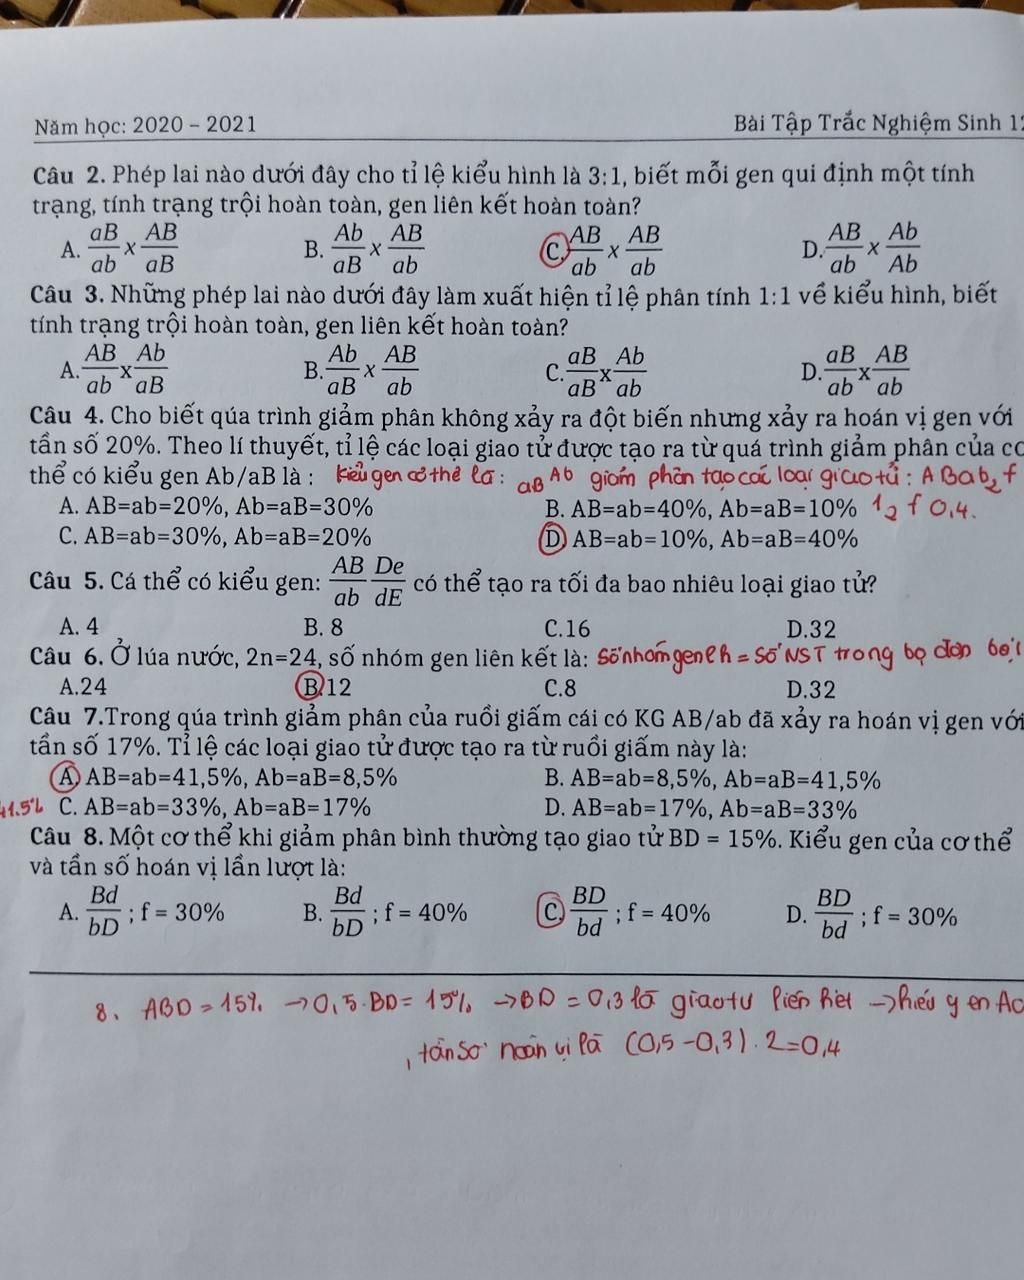 Năm học: 2020 – 2021
Bài Tập Trắc Nghiệm Sinh 12
Câu 2. Phép lai nào dưới đây cho tỉ lệ kiểu hình là 3:1, biết mỗi gen qui định một tính
trạng, tính trạng trội hoàn toàn, gen liên kết hoàn toàn?
A. aB/ab x AB/aB B. Ab/aB x AB/ab C. AB/ab x AB/ab D. AB/ab x Ab/Ab
Câu 3. Những phép lai nào dưới đây làm xuất hiện tỉ lệ phân tính 1:1 về kiểu hình, biết
tính trạng trội hoàn toàn, gen liên kết hoàn toàn?
A. AB/ab x Ab/aB B. Ab/aB x AB/ab C. aB/aB x Ab/ab D. aB/ab x AB/ab
Câu 4. Cho biết qúa trình giảm phân không xảy ra đột biến nhưng xảy ra hoán vị gen với
tần số 20%. Theo lí thuyết, tỉ lệ các loại giao tử được tạo ra từ quá trình giảm phân của cơ
thể có kiểu gen Ab/aB là : kiểu gen cơ thể là : aB Ab giảm phân tạo các loại giao tử : ABab, f
A. AB=ab=20%, Ab=aB=30% B. AB=ab=40%, Ab=aB=10% 12 f 0,4.
C. AB=ab=30%, Ab=aB=20% D. AB=ab=10%, Ab=aB=40%
Câu 5. Cá thể có kiểu gen: AB/ab De/dE có thể tạo ra tối đa bao nhiêu loại giao tử?
A. 4 B. 8 C.16 D.32
Câu 6. Ở lúa nước, 2n=24, số nhóm gen liên kết là: số nhóm gen lk = số NST trong bọ đơn bội
A.24 B.12 C.8 D.32
Câu 7.Trong qúa trình giảm phân của ruồi giấm cái có KG AB/ab đã xảy ra hoán vị gen với
tần số 17%. Tỉ lệ các loại giao tử được tạo ra từ ruồi giấm này là:
A. AB=ab=41,5%, Ab=aB=8,5% B. AB=ab=8,5%, Ab=aB=41,5%
41.5% C. AB=ab=33%, Ab=aB=17% D. AB=ab=17%, Ab=aB=33%
Câu 8. Một cơ thể khi giảm phân bình thường tạo giao tử BD = 15%. Kiểu gen của cơ thể
và tần số hoán vị lần lượt là:
A. Bd/bD ; f = 30% B. Bd/bD ; f = 40% C. BD/bd ; f = 40% D. BD/bd ; f = 30%
8. ABD = 15% → 0,5.BD = 15% → BD = 0,3 là giao tử liên kết → kiểu gen
, tần số hoán vị là (0,5 - 0,3) . 2 = 0,4